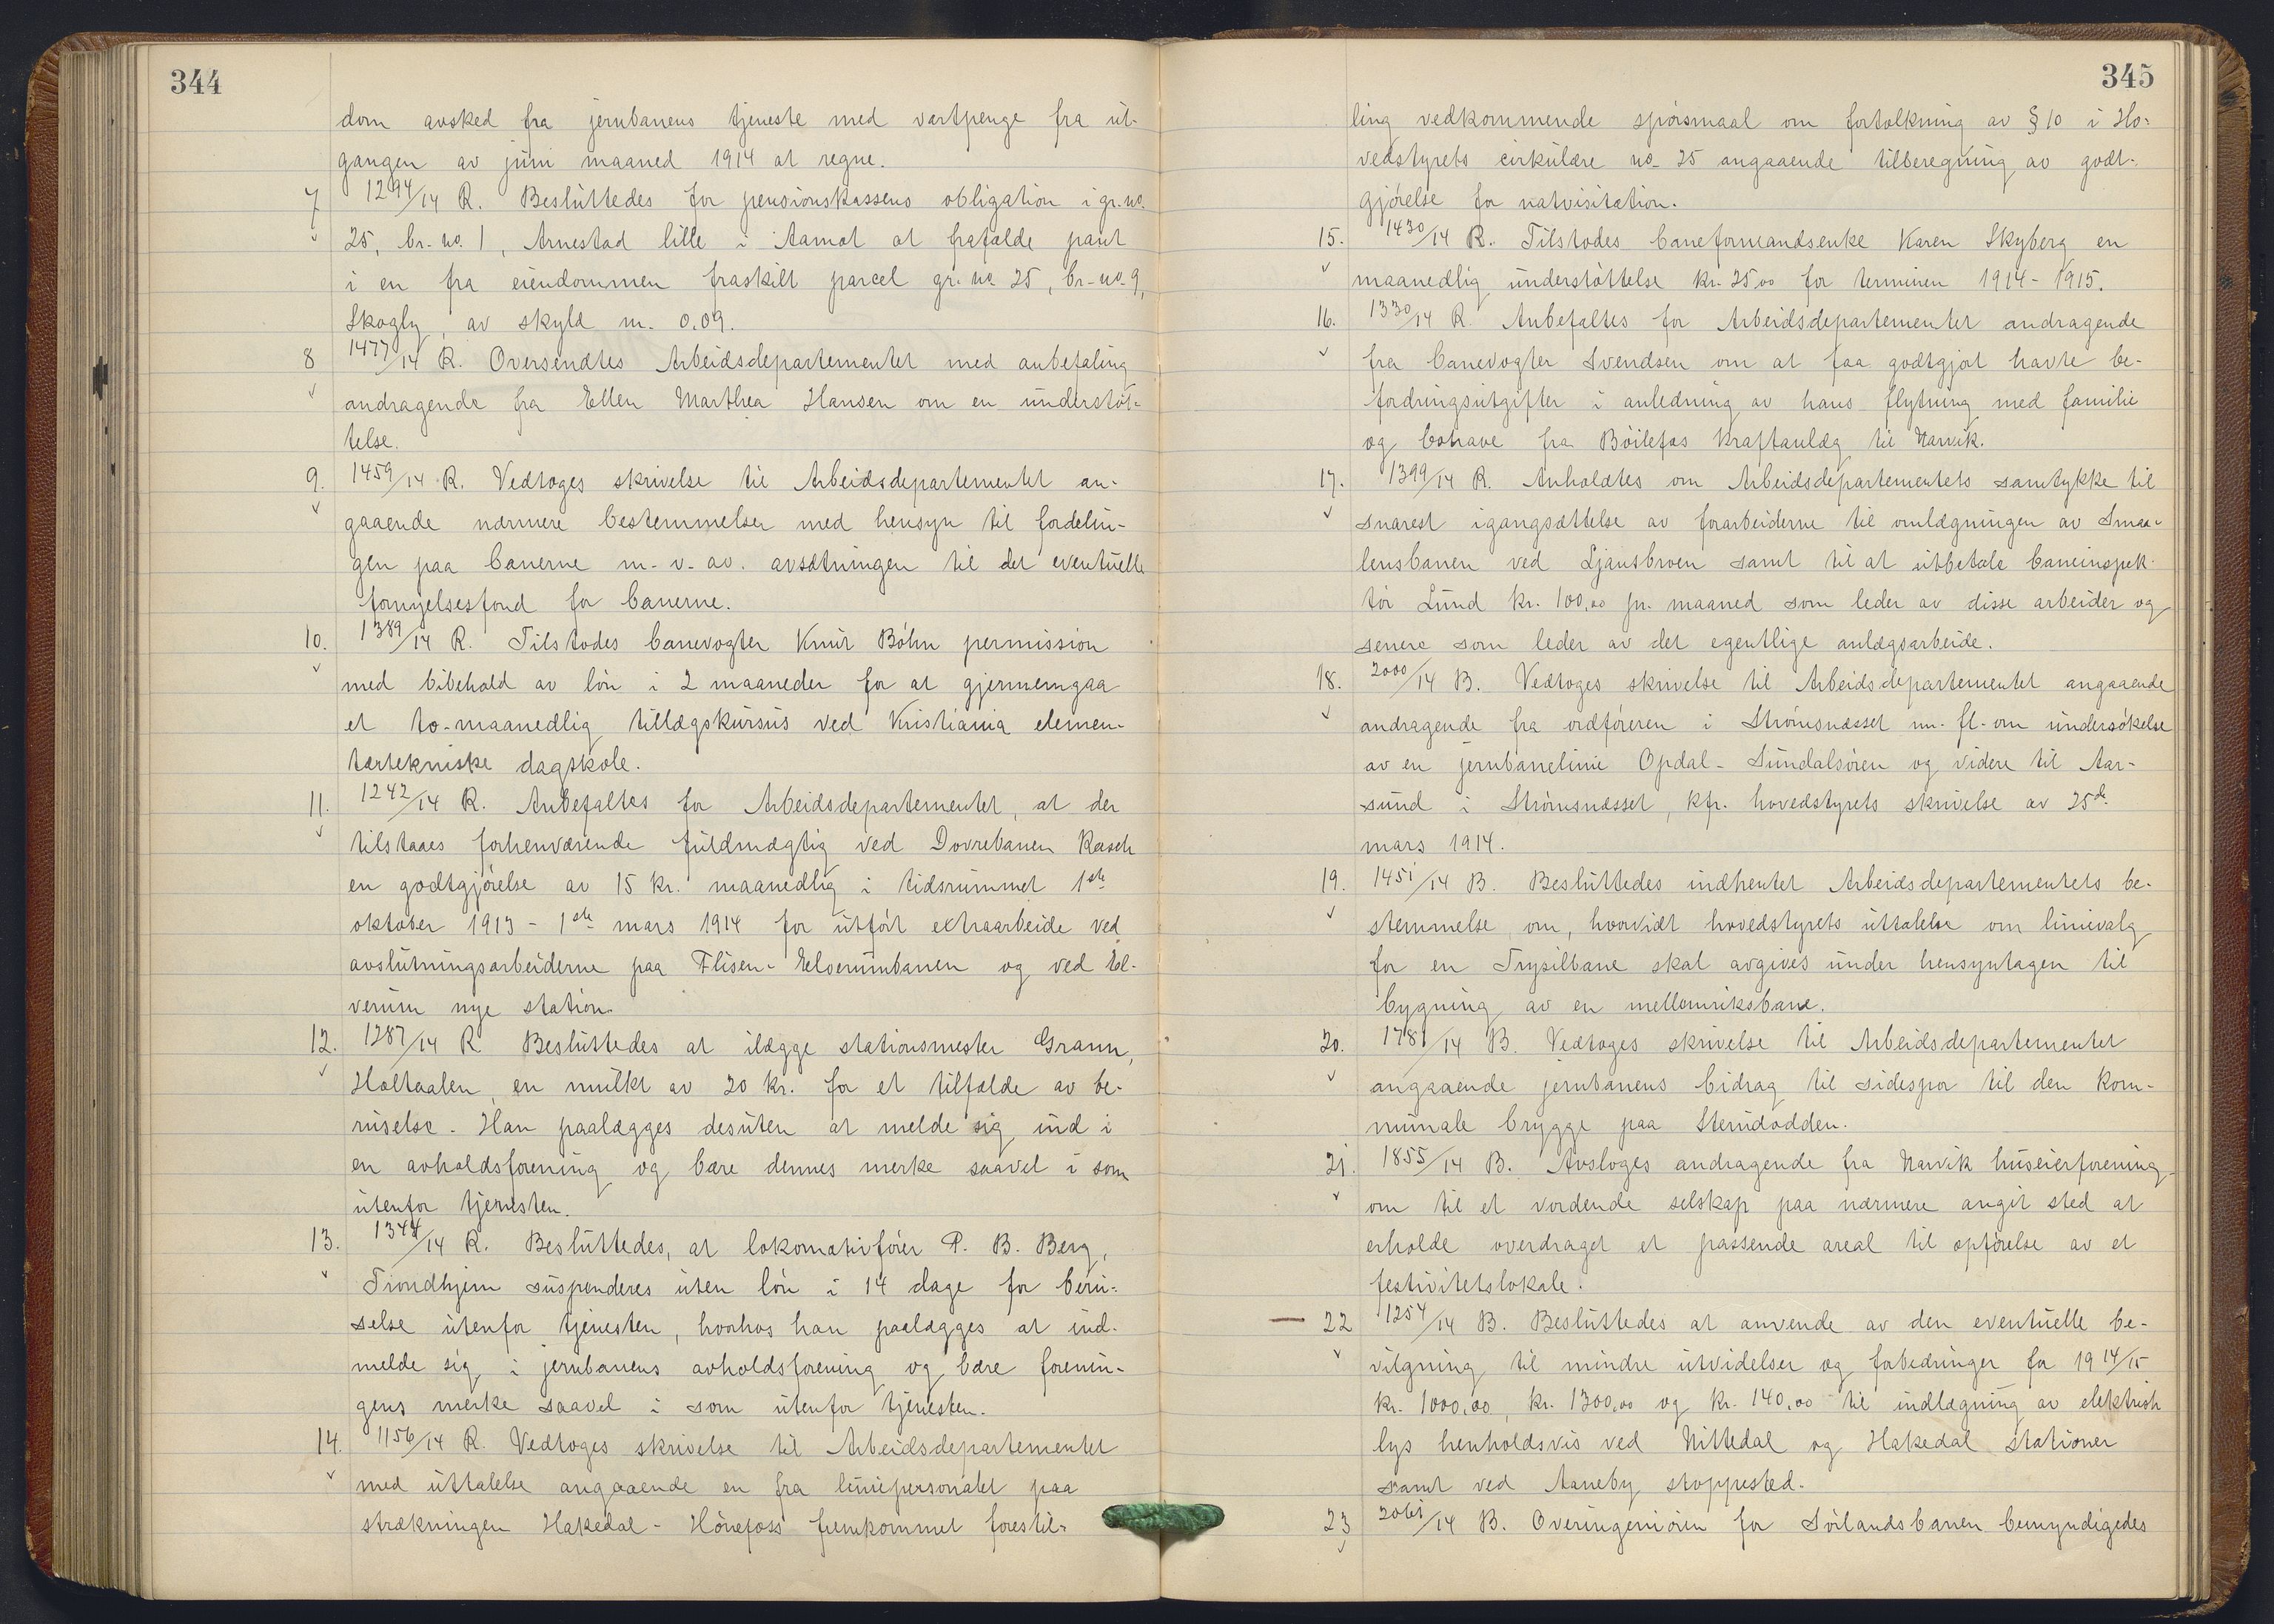 344
dom avsked fra jernbanens tjeneste med vartpenge fra ut-
gangen av juni maaned 1914 at regne.
7 1294/14 R. Besluttedes for pensionskassens obligation i gr. no.
25, br. no. 1, Arnestad lille i Aamot at frafalde pant
i en fra eiendommen fraskilt parcel gr. no. 25, br. no. 9,
Skogly, av skyld m. 0.09.
8 1477/14 R. Oversendtes Arbeidsdepartementet med anbefaling
andragende fra Ellen Marthea Hansen om en understøt-
telse.
9. 1459/14 R. Vedtoges skrivelse til Arbeidsdepartementet an-
gaaende nærmere bestemmelser med hensyn til fordelin-
gen paa banerne m. v. av. avsætningen til det eventuelle
fornyelsesfond for banerne.
10. 1389/14 R. Tilstodes banevogter Knut Bøhn permission
med bibehold av løn i 2 maaneder for at gjennemgaa
et to-maanedlig tillægskursus ved Kristiania elemen-
tærtekniske dagskole.
11. 1242/14 R. Anbefaltes for Arbeidsdepartementet, at der
tilstaaes forhenværende fuldmægtig ved Dovrebanen Rasch
en godtgjørelse av 15 kr. maanedlig i tidsrummet 1ste
oktober 1913 - 1ste mars 1914 for utført extraarbeide ved
avslutningsarbeiderne paa Flisen-Elverumbanen og ved El-
verum nye station.
12. 1287/14 R Besluttedes at ilægge stationsmester Gram,
Holtaalen, en mulkt av 20 kr. for et tilfælde av be-
ruselse. Han paalægges desuten at melde sig ind i
en avholdsforening og bære dennes merke saavel i som
utenfor tjenesten.
13. 1344/14 R. Besluttedes, at lokomotivfører P. B. Berg,
Trondhjem suspenderes uten løn i 14 dage for beru-
selse utenfor tjenesten, hvorhos han paalægges at ind-
melde sig i jernbanens avholdsforening og bære forenin-
gens merke saavel i som utenfor tjenesten.
14. 1156/14 R. Vedtoges skrivelse til Arbeidsdepartementet
med uttalelse angaaende en fra liniepersonalet paa
strækningen Hakedal - Hønefoss fremkommet forestil-
345
ling vedkommende spørsmaal om fortolkning av § 10 i Ho-
vedstyrets cirkulære no. 25 angaaende tilberegning av godt-
gjørelse for natvisitation.
15. 1430/14 R. Tilstodes baneformandsenke Karen Skyberg en
maanedlig understøttelse kr. 25,00 for terminen 1914 - 1915.
16. 1330/14 R. Anbefaltes for Arbeidsdepartementet andragende
fra banevogter Svendsen om at faa godtgjort havte be-
fordringsutgifter i anledning av hans flytning med familie
og bohave fra Bøilefos kraftanlæg til Narvik.
17. 1399/14 R. Anholdtes om Arbeidsdepartementets samtykke til
snarest igangsættelse av forarbeiderne til omlægningen av Smaa-
lensbanen ved Ljansbroen samt til at utbetale baneinspek-
tør Lund kr. 100,00 pr. maaned som leder av disse arbeider og
senere som leder av det egentlige anlægsarbeide.
18. 2000/14 B. Vedtoges skrivelse til Arbeidsdepartementet angaaende
andragende fra ordføreren i Strømsnæsset m. fl. om undersøkelse
av en jernbanelinie Opdal - Sundalsøren og videre til Aar-
sund i Strømsnæsset, kfr. hovedstyrets skrivelse av 25de
mars 1914.
19. 1451/14 B. Besluttedes indhentet Arbeidsdepartementets be-
stemmelse om, hvorvidt hovedstyrets uttalelse om linievalg
for en Trysilbane skal avgives under hensyntagen til
bygning av en mellemriksbane.
20. 1781/14 B. Vedtoges skrivelse til Arbeidsdepartementet
angaaende jernbanens bidrag til sidespor til den kom-
munale brygge paa Stenidodden.
21. 1855/14 B. Avsloges andragende fra Narvik huseierforening
om til et vordende selskap paa nærmere angit sted at
erholde overdraget et passende areal til opførelse av et
festivitetslokale.
22 1254/14 B. Besluttedes at anvende av den eventuelle be-
vilgning til mindre utvidelser og forbedringer for 1914/15
kr. 1000,00, kr. 1300,00 og kr. 140,00 til indlægning av elektrisk
lys henholdsvis ved Nittedal og Hakedal stationer
samt ved Aaneby stoppested.
23 2061/14 B. Overingeniøren for Sørlandsbanen bemyndigedes